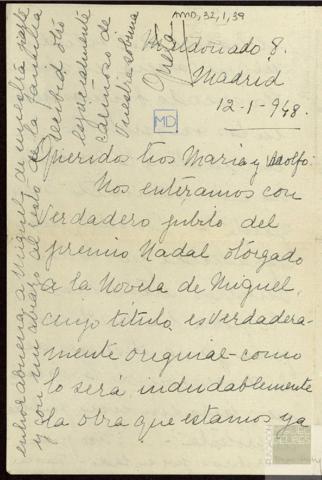 AMD,32,1,39
Maldonado 8.
Madrid
12-1-948.
MD
Queridos tios Maria y Adolfo:
Nos enteramos con
verdadero jubilo del
premio Nadal otorgado
a la Novela de Miguel,
cuyo titulo es verdadera-
mente original-como
lo será indudablemente
la obra que estamos ya
enhorabuena a Miguel de nuestra parte
y con un abrazo al resto de la familia
recibid otro
especialmente
cariñoso de
vuestra sobrina